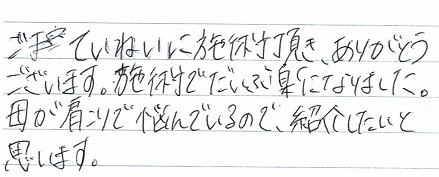 ていねいに施術頂き、ありがとう
ございます。施術でだいぶ楽になりました。
母が肩こりで悩んでいるので、紹介したいと
思います。